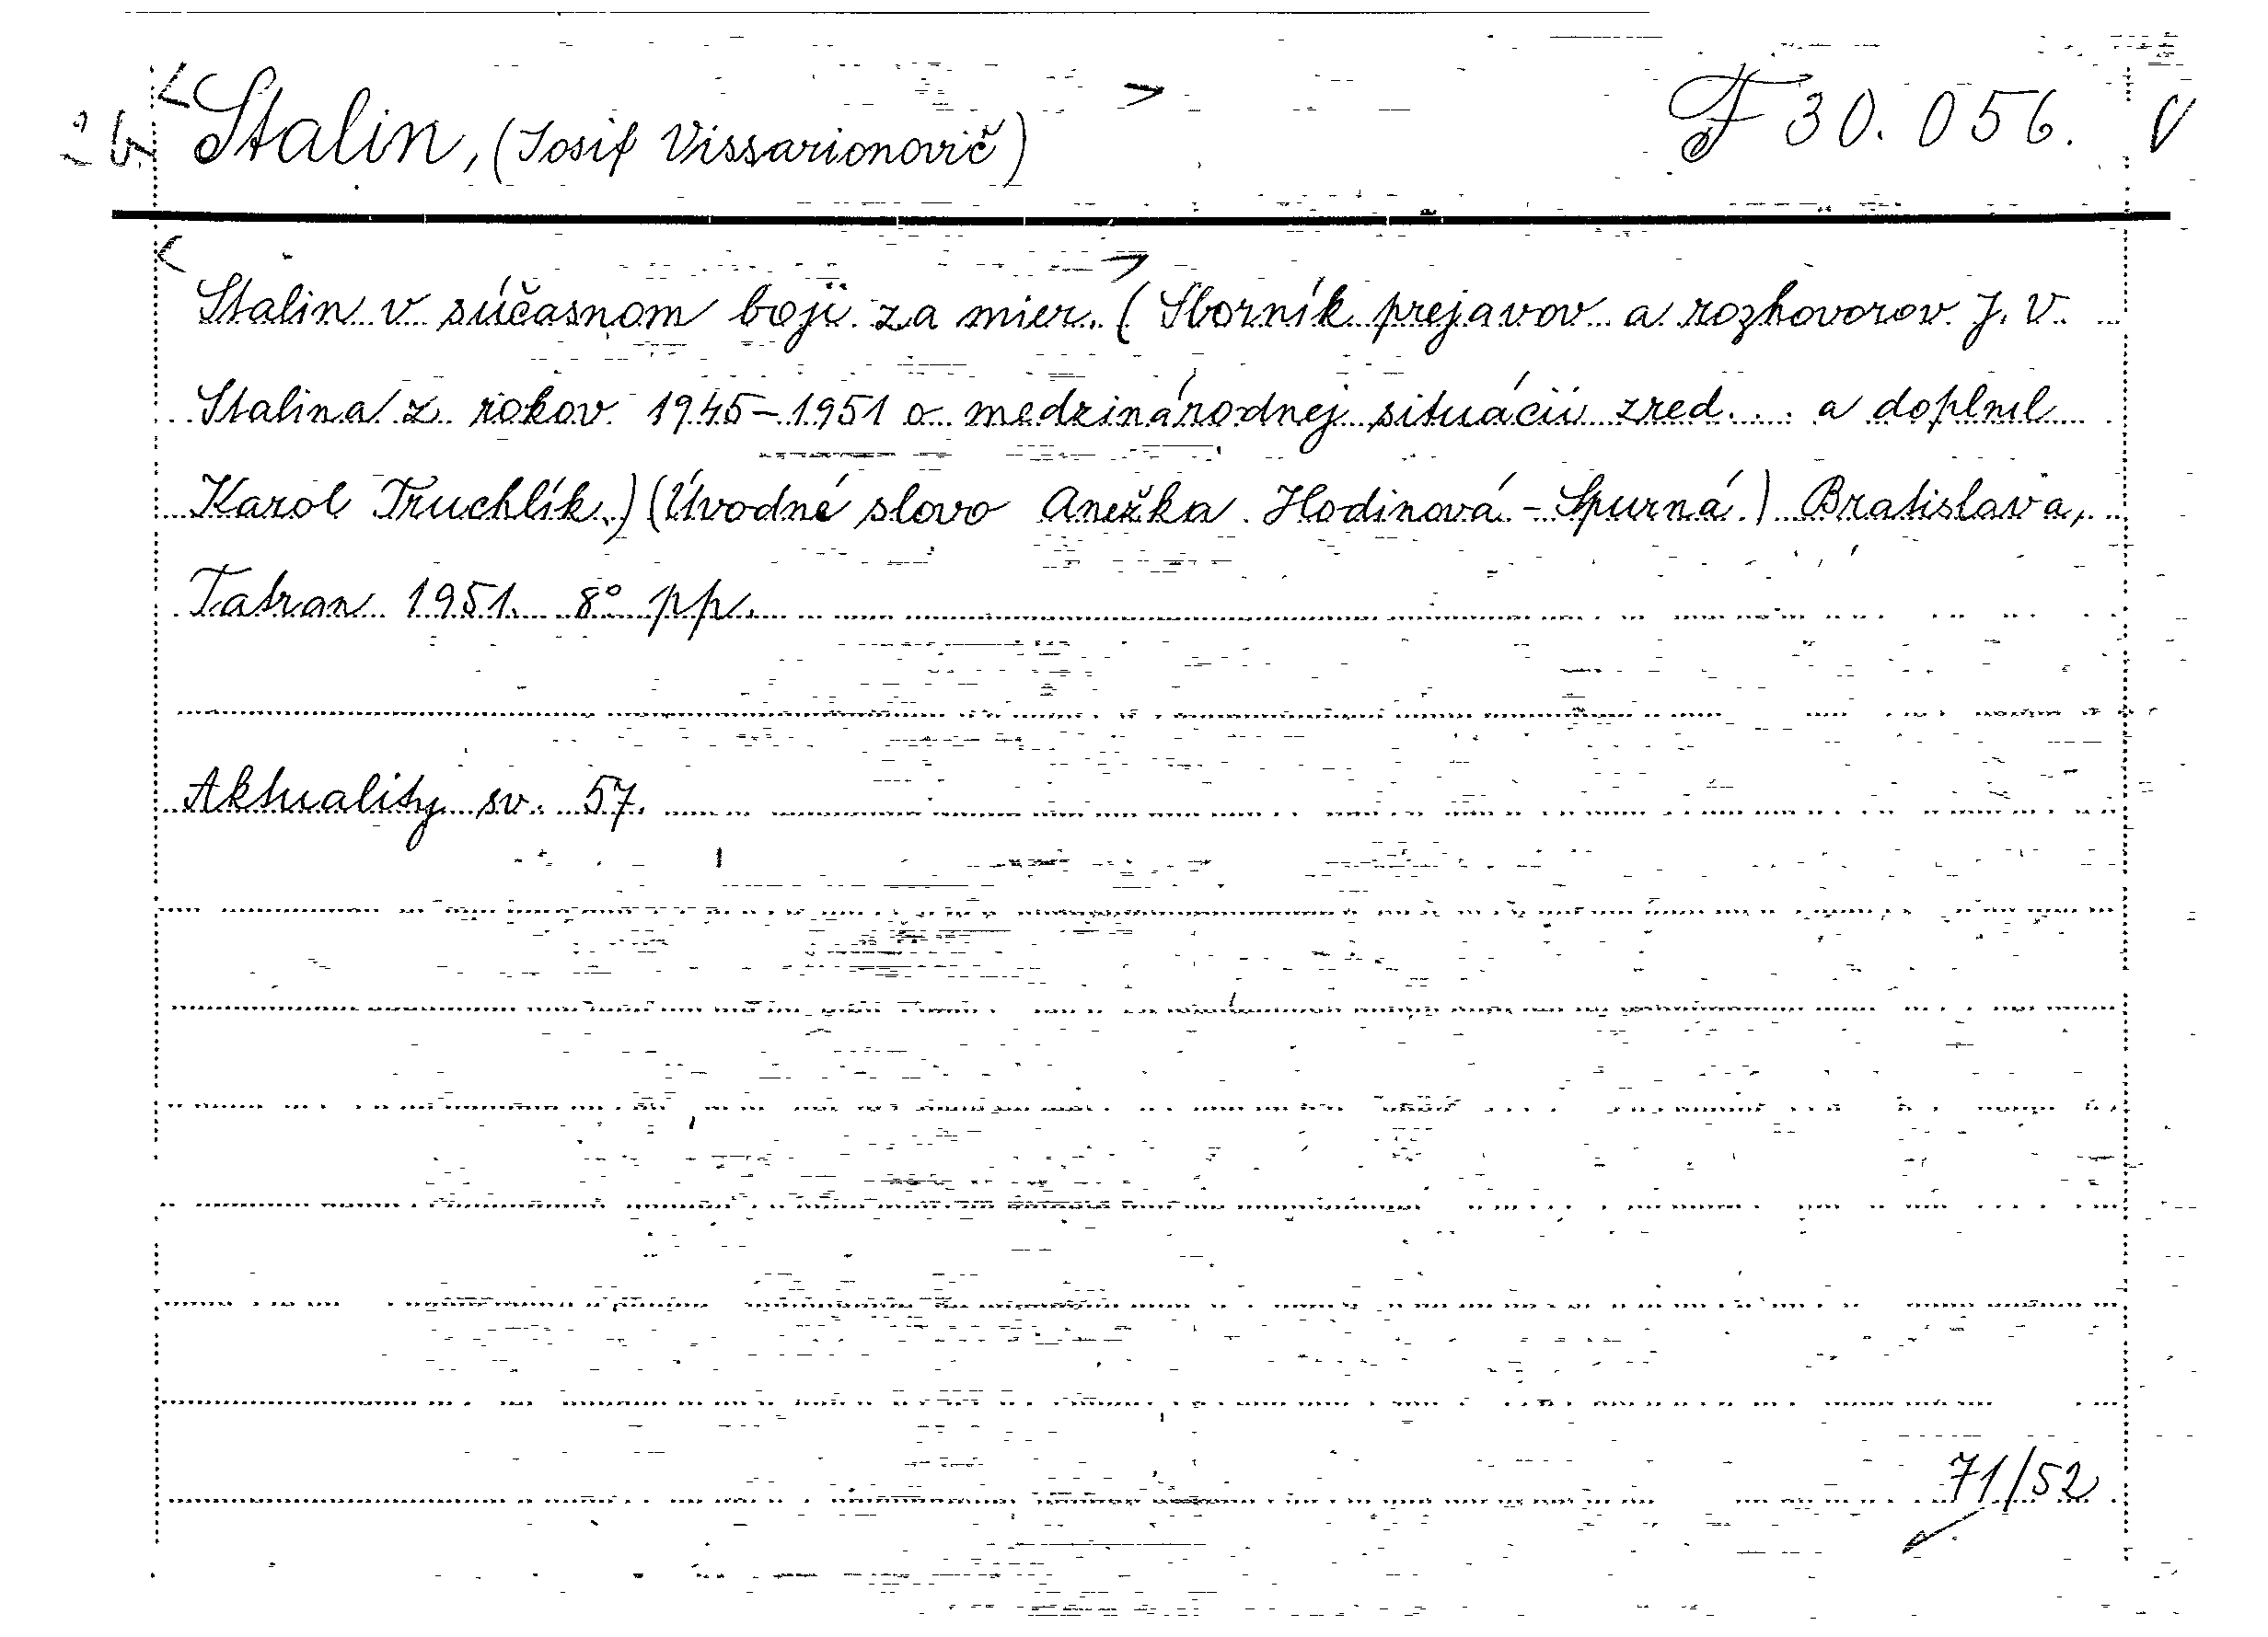 Stalin, (Iosif Vissarionovič) F 30.056.
Stalin v súčasnom boji za mier. (Sborník prejavov a rozhovorov J. V.
Stalina z rokov 1945-1951 o medzinárodnej situácii zred. . . a doplnil
Karol Truchlík.) (Úvodné slovo Anežka Hodinová-Spurná.) Bratislava,
Tatran 1951. 8° pp.
Aktuality sv. 57.
71/52